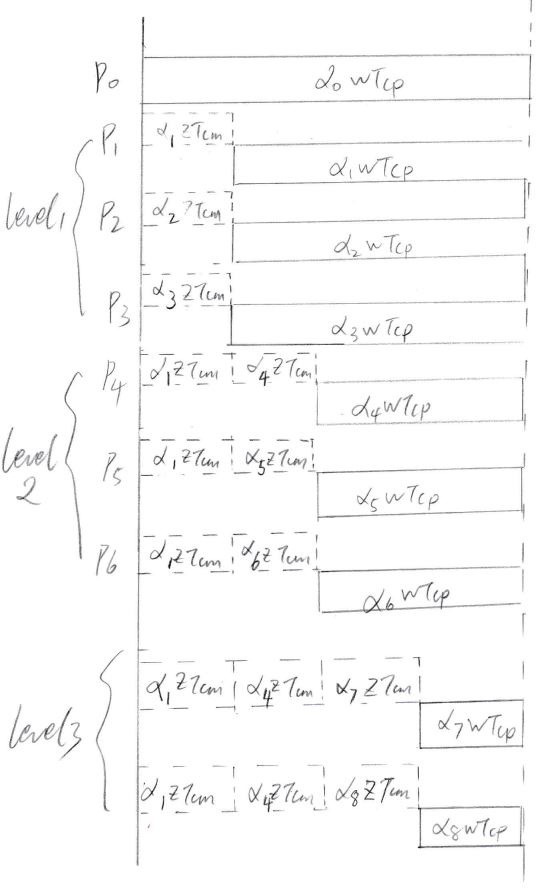 P₀ α₀wTcp
α₁zTcm
P₁
α₁wTcp
Level 1
α₂zTcm
P₂
α₂wTcp
α₃zTcm
P₃
α₃wTcp
P₄ α₁zTcm α₄zTcm
α₄wTcp
Level 2
P₅ α₁zTcm α₅zTcm
α₅wTcp
P₆ α₁zTcm α₆zTcm
α₆wTcp
Level 3
α₁zTcm α₄zTcm α₇zTcm
α₇wTcp
α₁zTcm α₄zTcm α₈zTcm
α₈wTcp